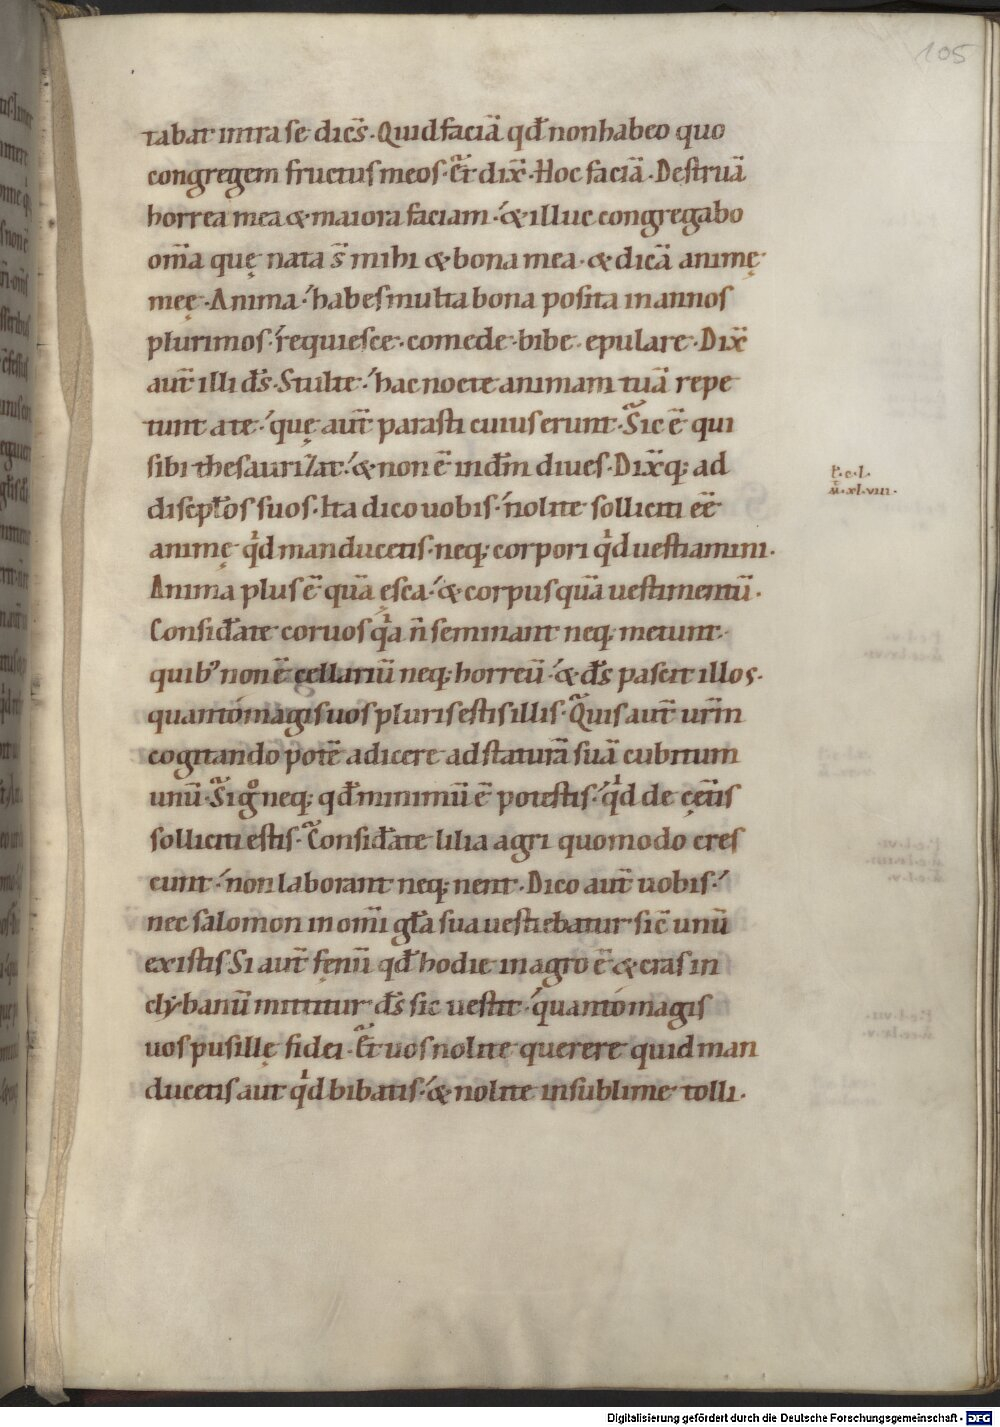 105
tabat intra se dicēs. Quid faciā qđ non habeo quo
congregem fructus meos. Et dix̄. Hoc faciā. Destruā
horrea mea & maiora faciam. & illuc congregabo
om̄a quę nata s̄ mihi & bona mea. & dicā animę
meę. Anima. habes multa bona posita in annos
plurimos. requiesce. comede. bibe. epulare. Dix̄
aut̄ illi d̄s. Stulte. hac nocte animam tuā repe
tunt a te. quę aut̄ parasti cuius erunt. Sic ē qui
sibi thesaurizat. & non ē in dm̄ diues. Dix̄q; ad
discipłos suos. Ita dico uobis. nolite solliciti eē
animę qⁱd manducetis. neq; corpori qⁱd uestiamini.
Anima plus ē quā ęsca. & corpus quā uestimentū.
Consiđate coruos qⁱa n̄ seminant neq; metunt.
quib' non ē cellariū neq; horreū. & d̄s pascit illos.
quanto magis uos pluris estis illis. Quis aut̄ urm̄
cogitando potē adicere ad staturā suā cubitum
unū. Si gͦ neq; qđ minimū ē potestis. qⁱd de cęt̄is
solliciti estis. Consiđate lilia agri quomodo cres
cunt. non laborant neq; nent. Dico aut̄ uobis.
nec salomon in om̄i gła sua uestiebatur sic̄ unū
ex istis. Si aut̄ fęnū qđ hodie in agro ē & cras in
clybanū mittitur d̄s sic uestit. quanto magis
uos pusillę fidei. Et uos nolite querere quid man
ducetis aut qⁱd bibatis. & nolite in sublime tolli.
l̄. c. l.
m̄. xl. viii.
Digitalisierung gefördert durch die Deutsche Forschungsgemeinschaft - DFG